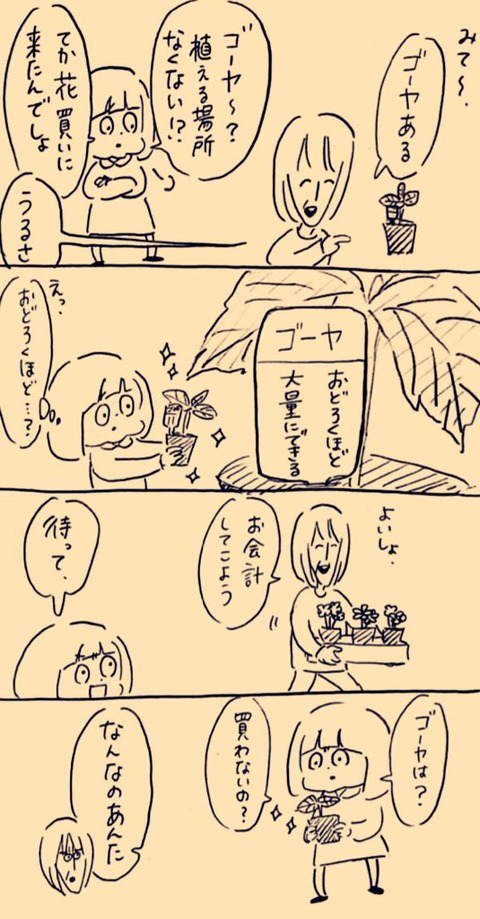 みて〜.
ゴーヤある
ゴーヤ〜?
植える場所
なくない!?
てか花買いに
来たんでしょ
うるさ
ゴーヤ
おどろくほど
大量にできる
えっ.
おどろくほど…?
よいしょ.
お会計
してこよう
待って.
ゴーヤは?
買わないの?
なんなのあんた